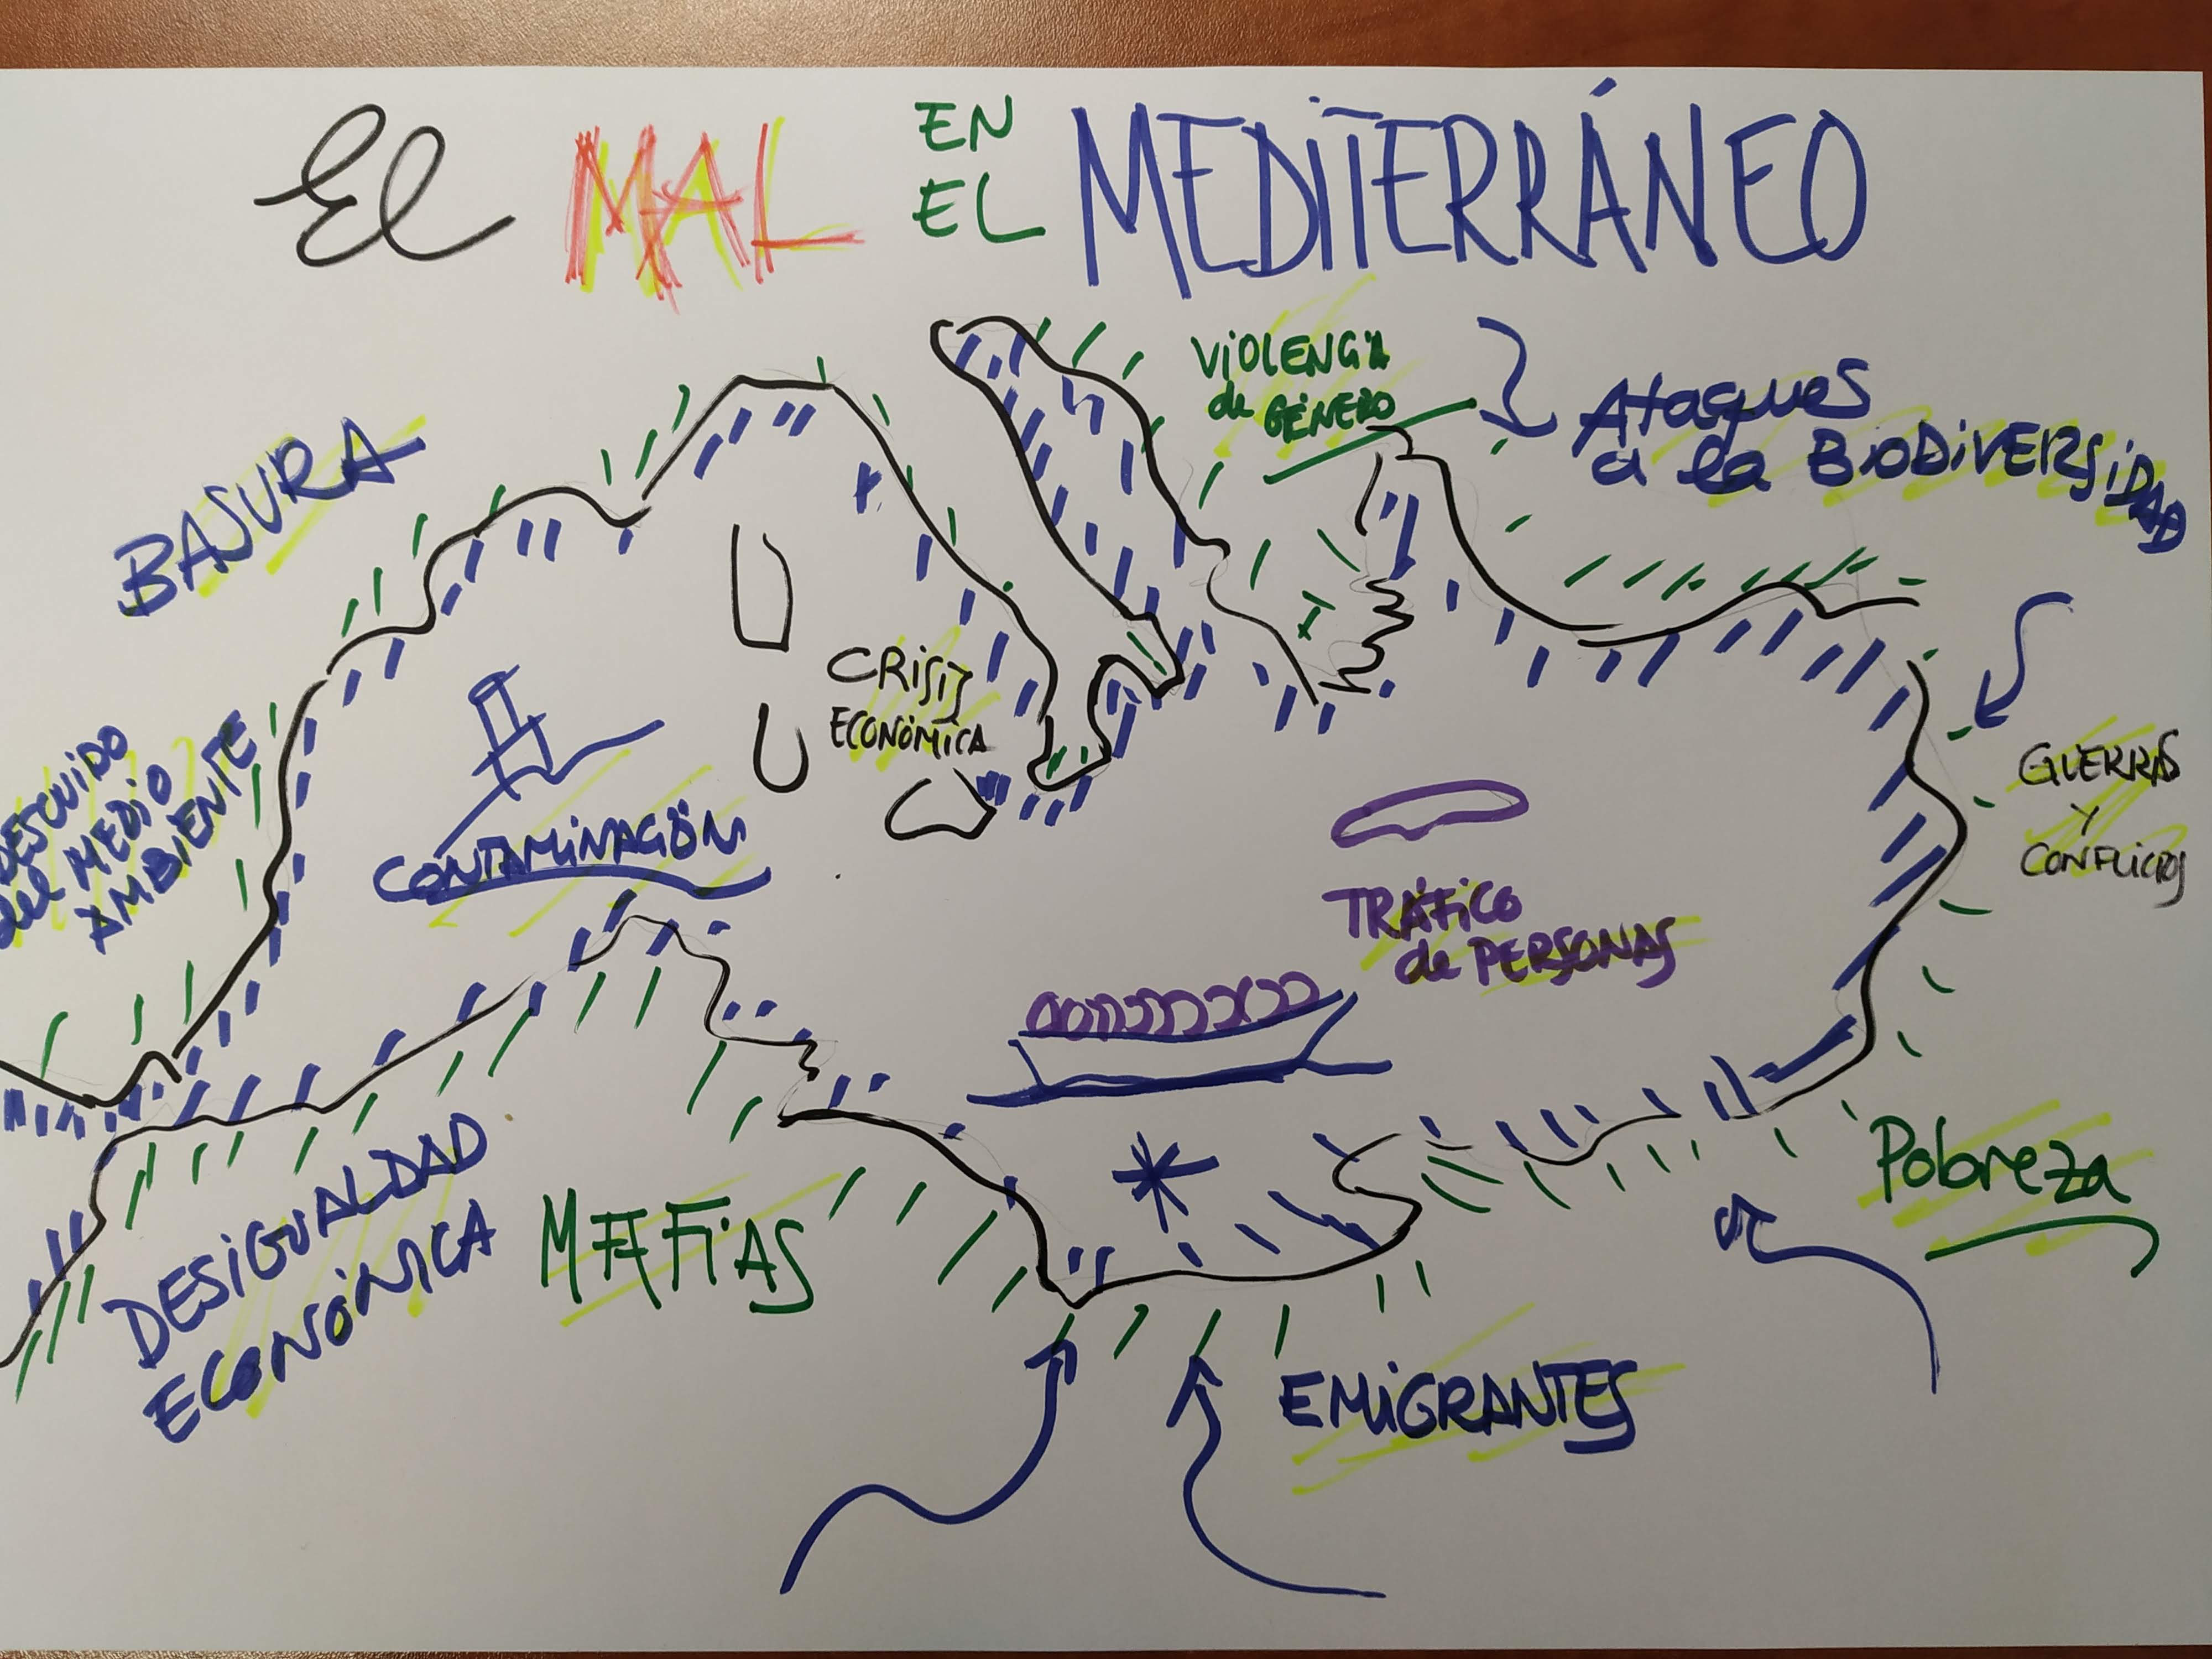 El MAL EN EL MEDITERRÁNEO
VIOLENCIA
de GÉNERO
Ataques
a la BIODIVERSIDAD
BASURA
CRISIS
ECONÓMICA
DESCUIDO
del MEDIO
AMBIENTE
CONTAMINACIÓN
GUERRAS
Y
CONFLICTOS
TRÁFICO
de PERSONAS
DESIGUALDAD
ECONÓMICA
MAFIAS
Pobreza
EMIGRANTES